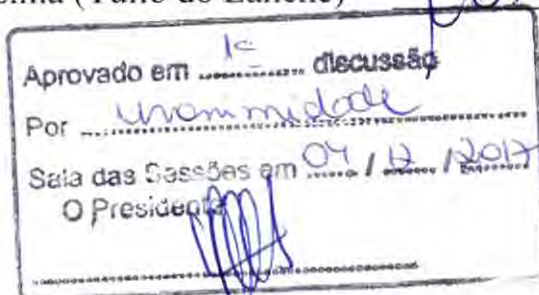 (Tulio do Lanche)
Aprovado em 1ª discussão
Por unanimidade
Sala das Sessões em 04 / 12 / 2017
O Presidente